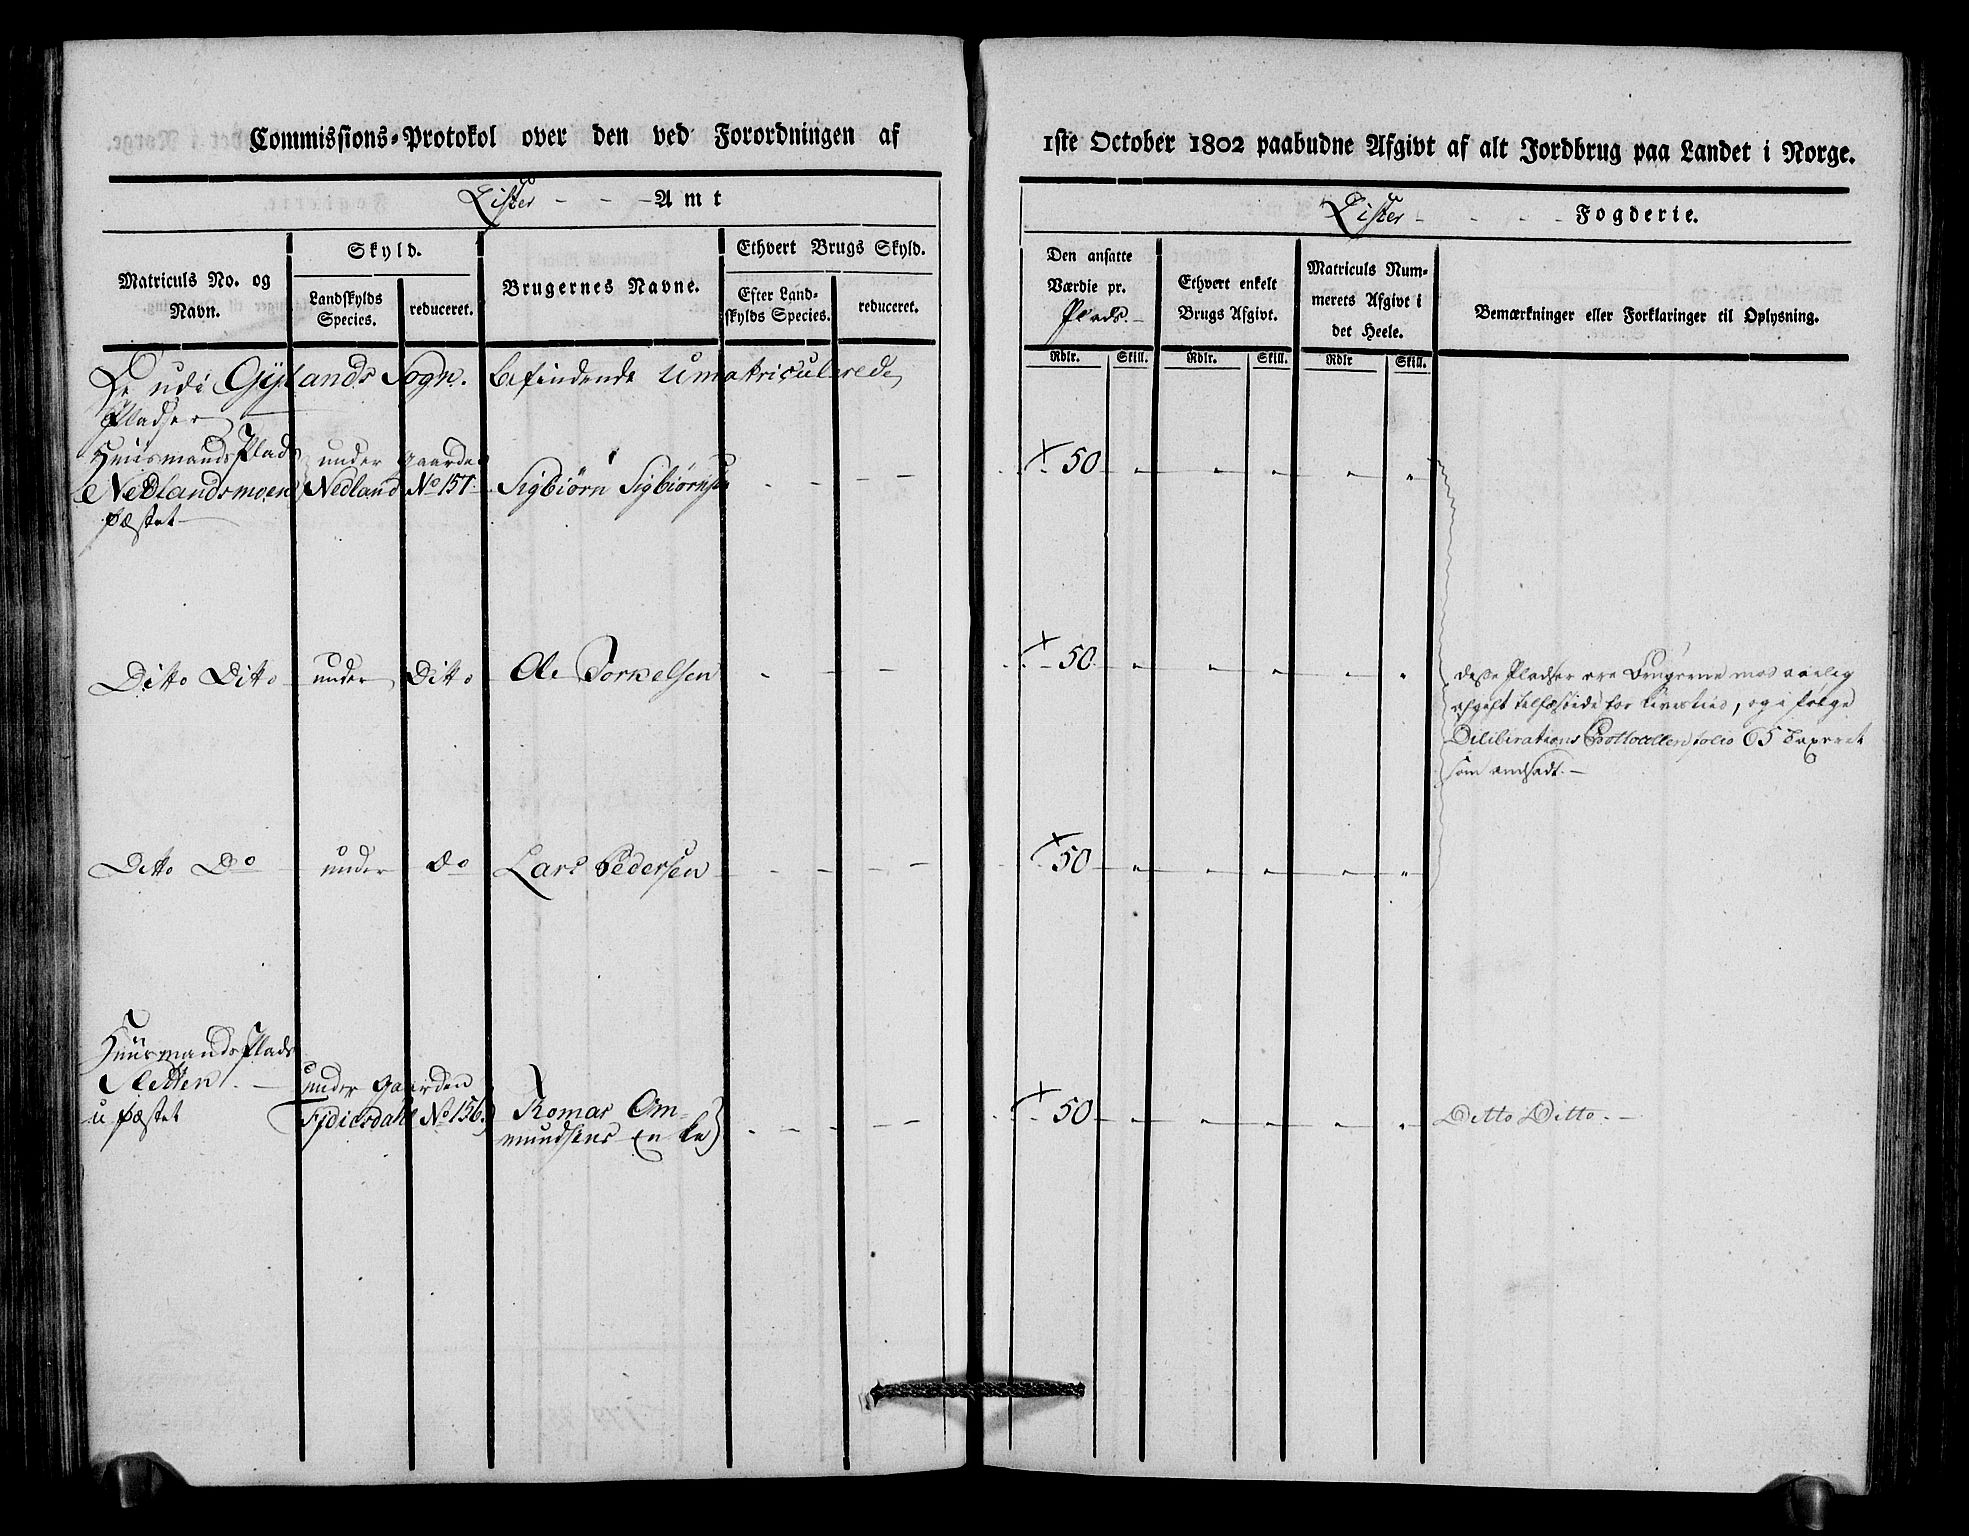 Commissions-Protokol over den ved Forordningen af
Lister - - - Amt
Matriculs No. og Navn.
Skyld.
Landskylds Species.
reduceret.
Brugernes Navne.
Ethvert Brugs Skyld.
Efter Landskylds Species.
reduceret.
De udi Gylands Sogn. befindende Umatriculerede
Pladser
Huusmands Plads under Gaarden
Nedlandsmoen Nedland No 157. Sigbiørn Sigbiørnsen
fæstet
Ditto Ditto under Ditto Ole Torkelsen
Ditto Do under do Lars Pedersen
Huusmands Plads
Sletten. under Gaarden
u fæstet No 156. Romar Om-
mundsens Enke
1ste October 1802 paabudne Afgivt af alt Jordbrug paa Landet i Norge.
Lister - - - - Fogderie.
Den ansatte Værdie pr. Plads.
Ethvert enkelt Brugs Afgivt.
Matriculs Nummerets Afgivt i det Heele.
Bemærkninger eller Forklaringer til Oplysning.
Rdlr. Skill. Rdlr. Skill. Rdlr Skill.
50
50
disse Pladser ere Brugerne mod aarlig
afgift fæstede for Livstid, og i følge
Deliberations Protocollen folio 65
som andsadt.
50
50 Ditto Ditto.